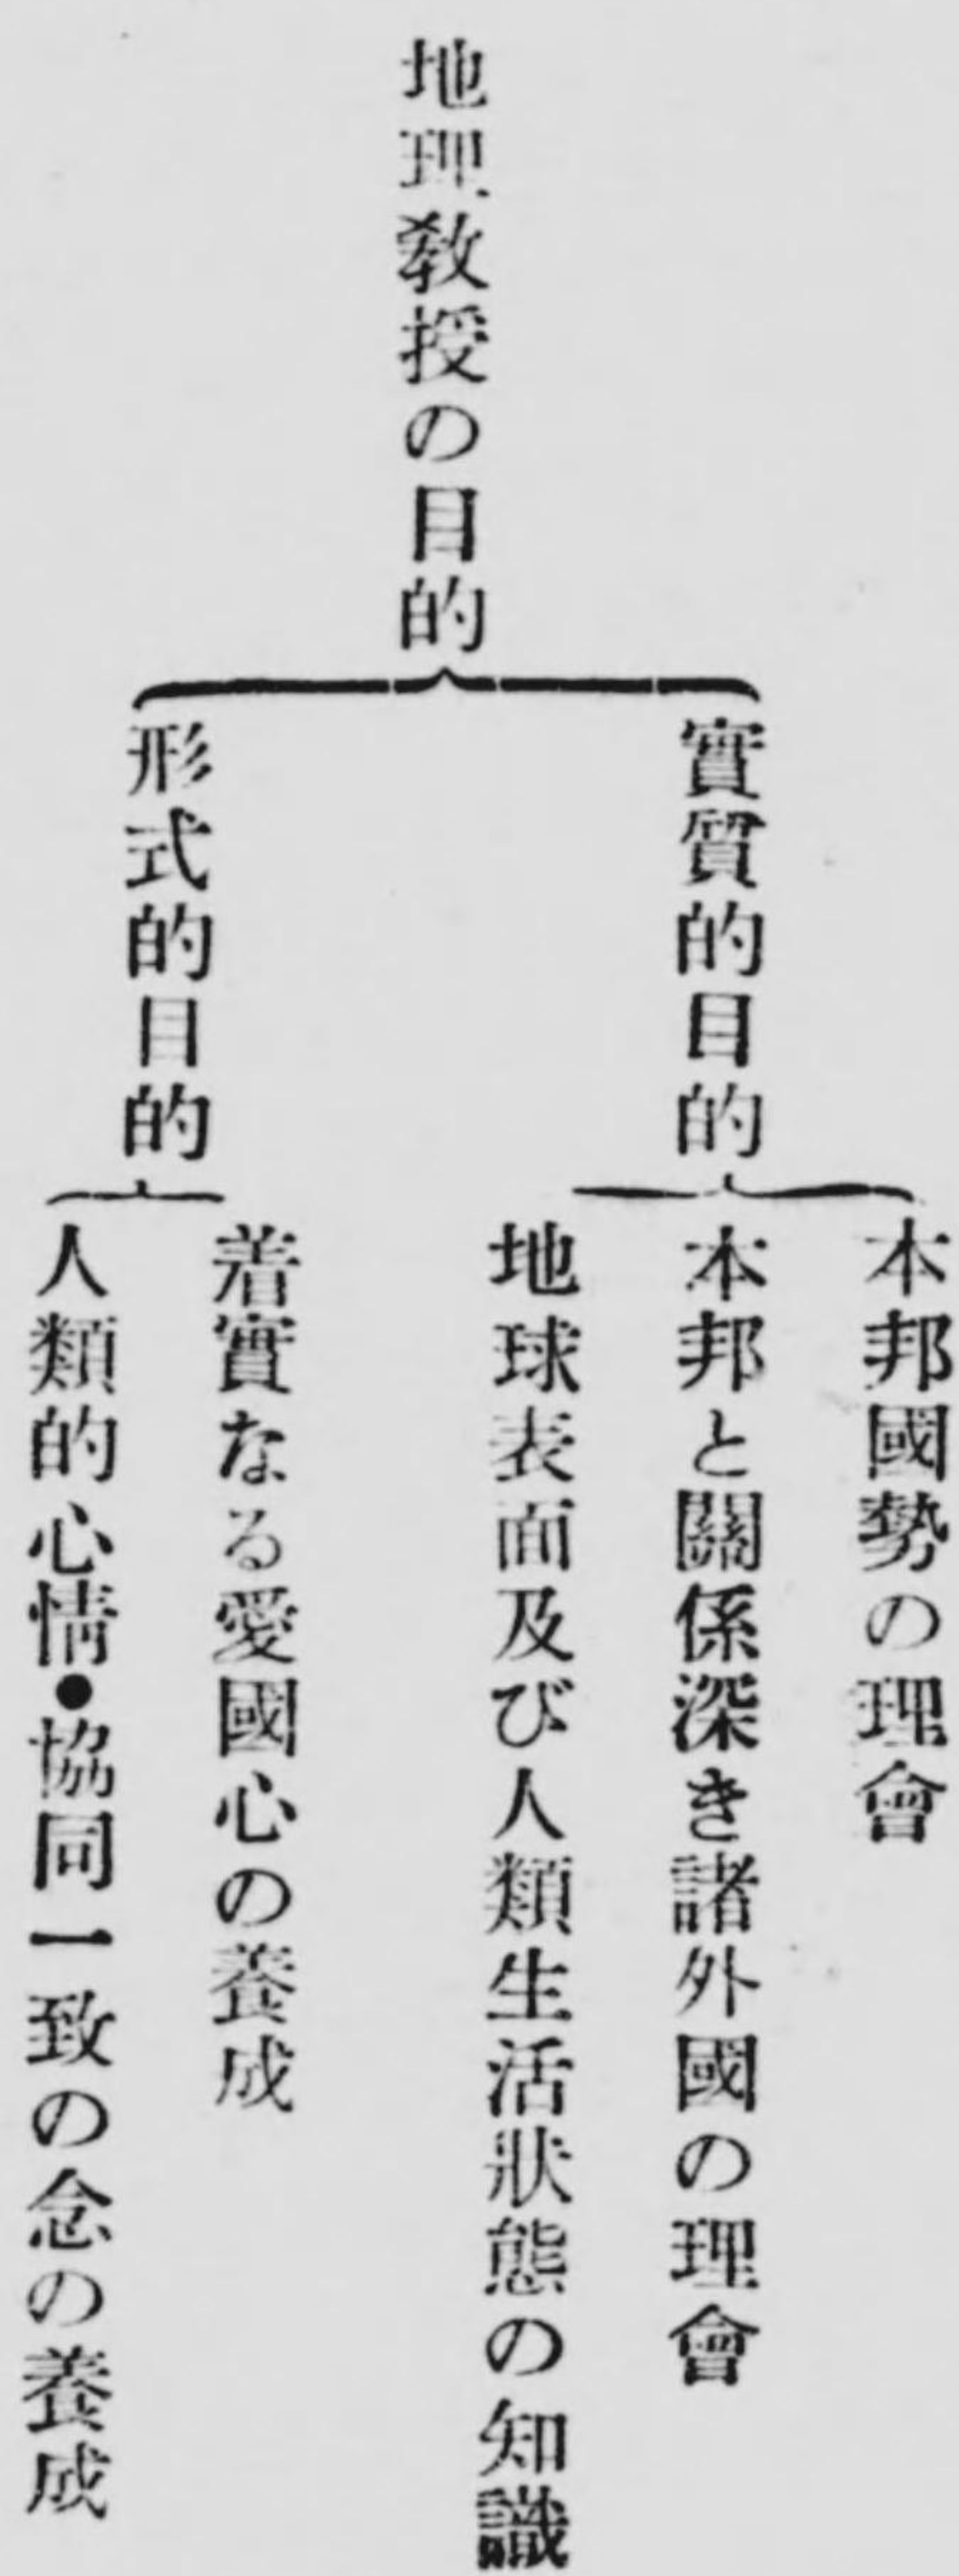 地理教授の目的
實質的目的
本邦國勢の理會
本邦と關係深き諸外國の理會
地球表面及び人類生活狀態の知識
形式的目的
着實なる愛國心の養成
人類的心情●協同一致の念の養成